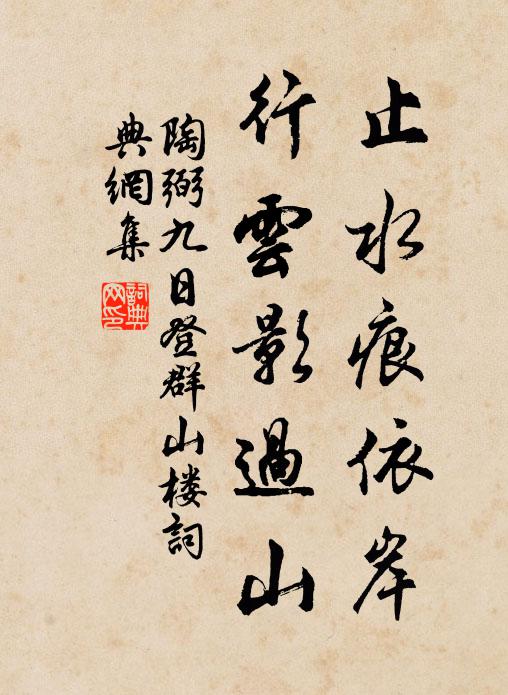 止水痕依岸
行雲影過山
陶弼九日登群山楼詞
典網集
詞典網印